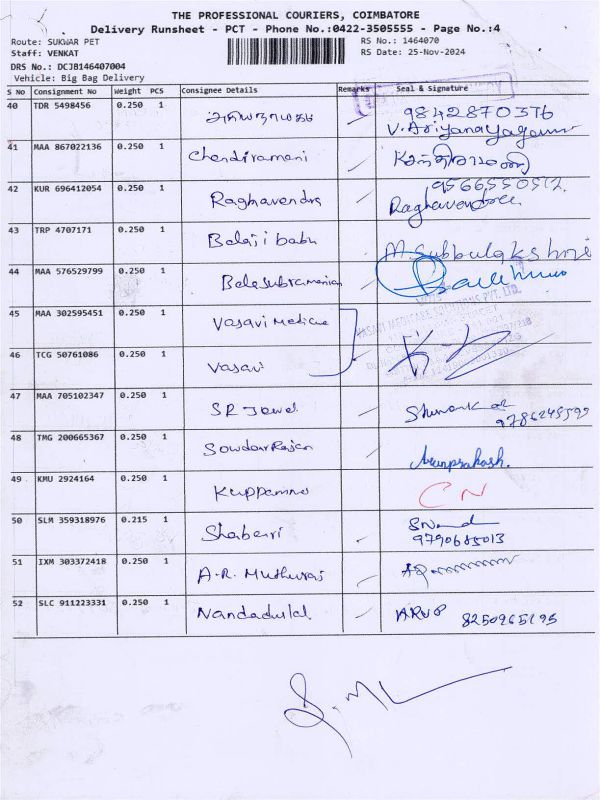 THE PROFESSIONAL COURIERS, COIMBATORE
Delivery Runsheet - PCT - Phone No.:0422-3505555 - Page No.:4
Route: SUKWAR PET
Staff: VENKAT
RS No.: 1464070
RS Date: 25-Nov-2024
DRS No.: DCJB146407004
Vehicle: Big Bag Delivery
S No Consignment No Weight PCS Consignee Details Remarks Seal & Signature
40 TDR 5498456 0.250 1 9842870376
V. Ariyanayagam
41 MAA 867022136 0.250 1 Chendiramani
42 KUR 696412054 0.250 1 Raghavendra 9566550512
Raghavendra
43 TRP 4707171 0.250 1 Balaji babu M. Subbulakshmi
44 MAA 576529799 0.250 1 Balasubramanian
45 MAA 302595451 0.250 1 Vasavi Medicare
46 TCG 50761086 0.250 1 Vasavi
47 MAA 705102347 0.250 1 SR Jewel
9786245599
48 TMG 200665367 0.250 1 SowdarRajan Arunprakash.
49 KMU 2924164 0.250 1 Kuppammal CN
50 SLM 359318976 0.215 1 Shabeari
9790685013
51 IXM 303372418 0.250 1 A.R. Muthuraj
52 SLC 911223331 0.250 1 Nandadulal ARUP 8250965195